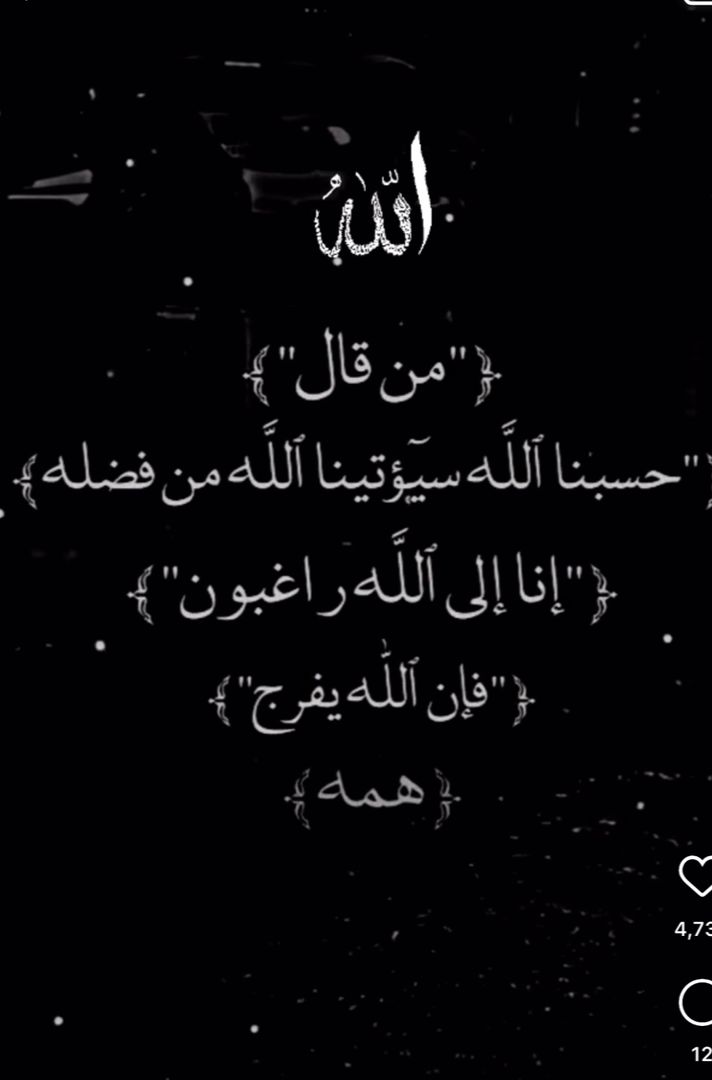 اللّٰهُ
﴿"من قال"﴾
﴿"حسبنا ٱللَّه سيؤتينا ٱللَّه من فضله﴾
﴿"إنا إلى ٱللَّه راغبون"﴾
﴿"فإن ٱللّٰه يفرج"﴾
﴿همه﴾
4,73
12